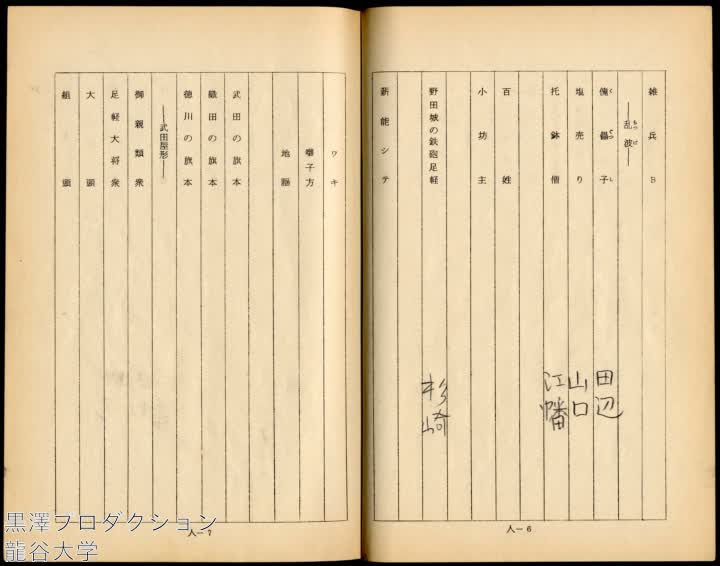 雑兵B
―乱波―
傀儡子 田辺
塩売り 山口
托鉢僧 江幡
百姓
小坊主
野田城の鉄砲足軽 杉崎
薪能シテ
人―6
ワキ
囃子方
地謡
武田の旗本
織田の旗本
徳川の旗本
―武田屋形―
御親類衆
足軽大将衆
大頭
組頭
人―7
黒澤プロダクション
龍谷大学